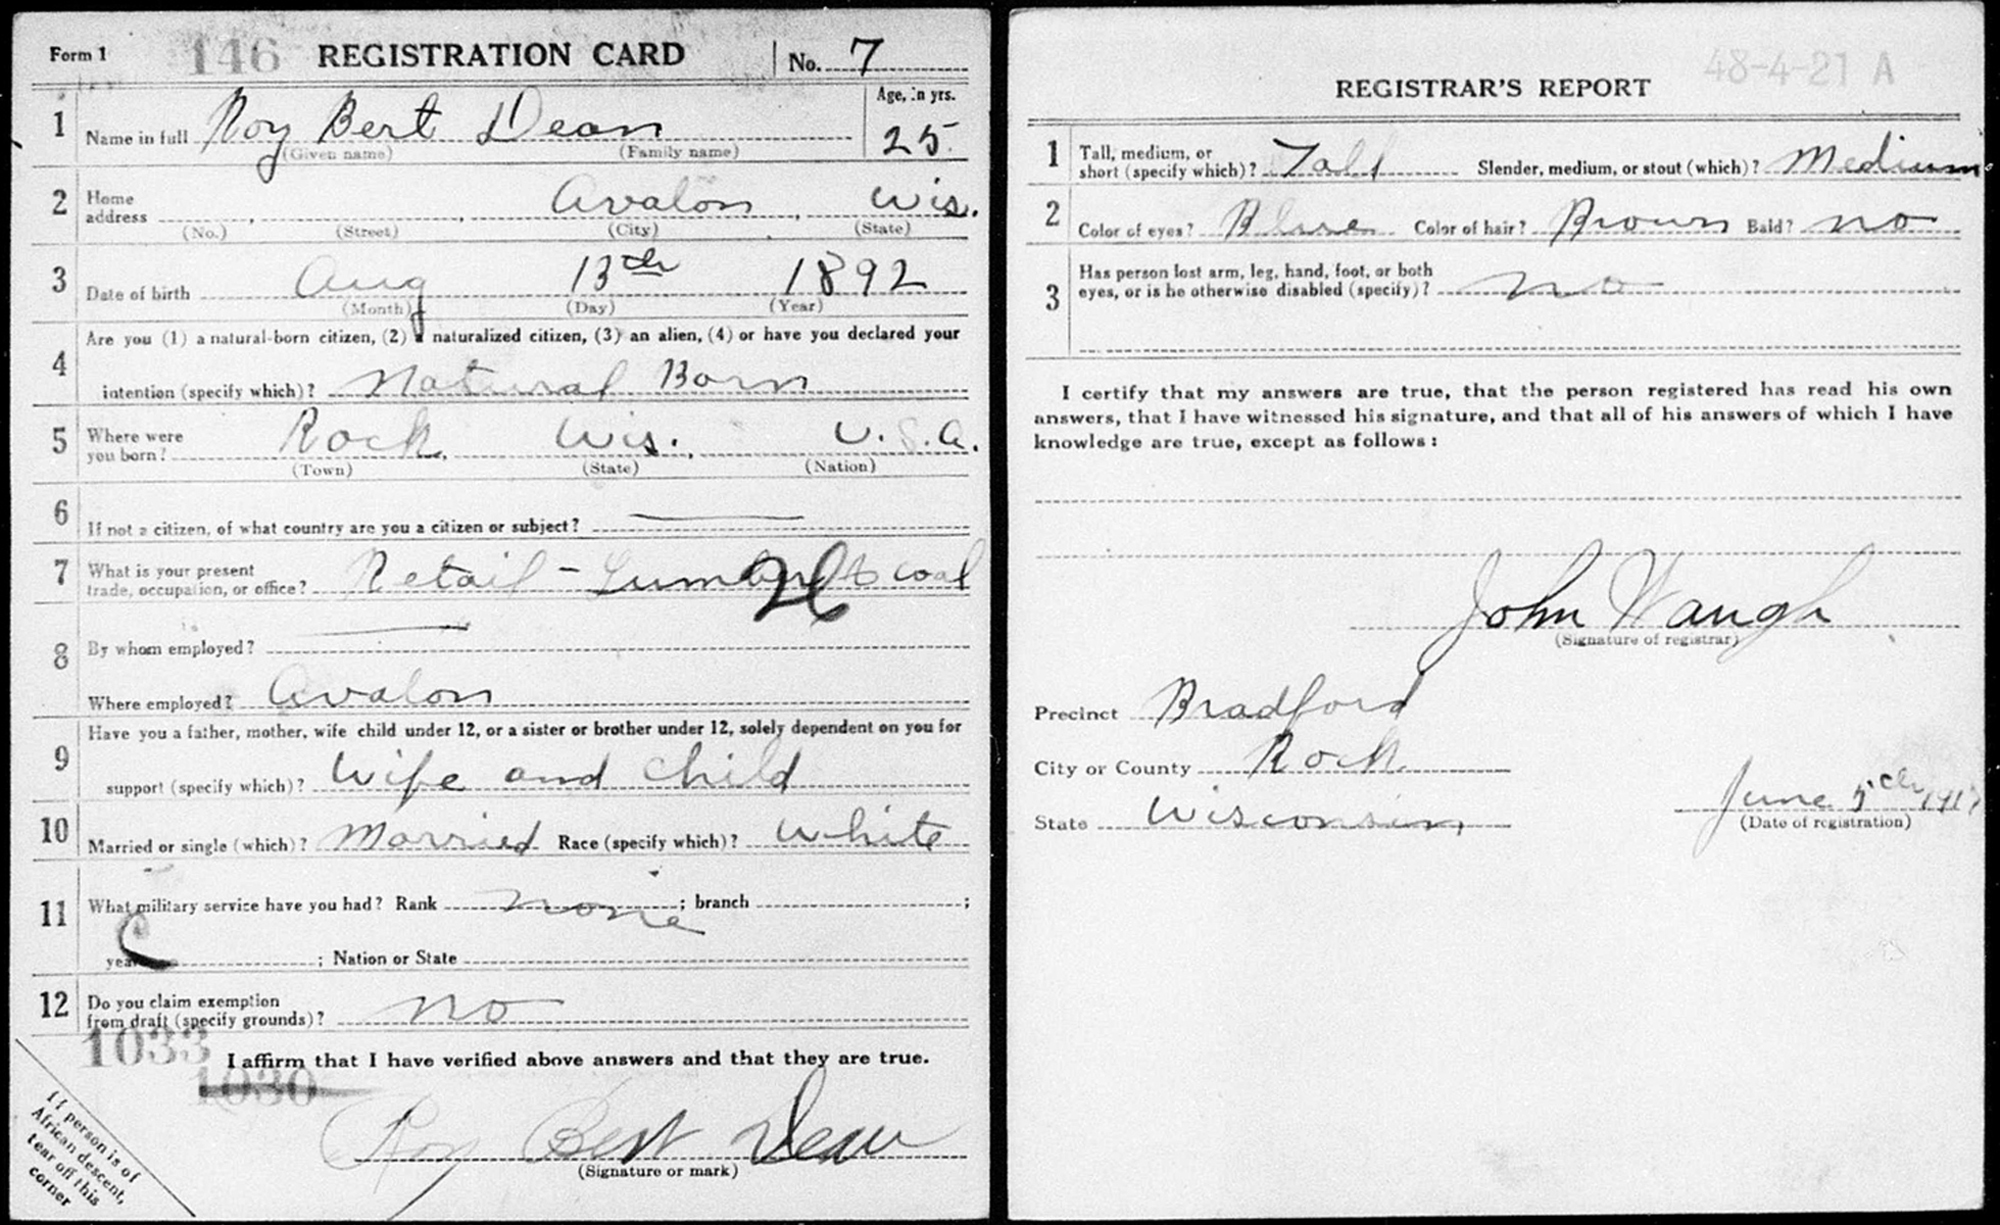 Form 1 146 REGISTRATION CARD No. 7
1 Name in full Roy Bert Dean Age, in yrs. 25
(Given name) (Family name)
2 Home address Avalon, Wis.
(No.) (Street) (City) (State)
3 Date of birth Aug 13th 1892
(Month) (Day) (Year)
4 Are you (1) a natural-born citizen, (2) a naturalized citizen, (3) an alien, (4) or have you declared your
intention (specify which)? Natural Born
5 Where were you born? Rock, Wis., U.S.A.
(Town) (State) (Nation)
6 If not a citizen, of what country are you a citizen or subject? —
7 What is your present trade, occupation, or office? Retail - Lumber & coal
26
8 By whom employed? —
Where employed? Avalon
9 Have you a father, mother, wife child under 12, or a sister or brother under 12, solely dependent on you for
support (specify which)? Wife and child
10 Married or single (which)? Married Race (specify which)? White
11 What military service have you had? Rank none ; branch ;
years ; Nation or State
12 Do you claim exemption from draft (specify grounds)? No
1033
I affirm that I have verified above answers and that they are true.
1030
Roy Bert Dean
(Signature or mark)
If person is of
African descent,
tear off this
corner
48-4-21 A
REGISTRAR'S REPORT
1 Tall, medium, or short (specify which)? Tall Slender, medium, or stout (which)? Medium
2 Color of eyes? Blue Color of hair? Brown Bald? no
3 Has person lost arm, leg, hand, foot, or both
eyes, or is he otherwise disabled (specify)? no
I certify that my answers are true, that the person registered has read his own
answers, that I have witnessed his signature, and that all of his answers of which I have
knowledge are true, except as follows:
John Waugh
(Signature of registrar)
Precinct Bradford
City or County Rock
State Wisconsin
June 5th 1917
(Date of registration)